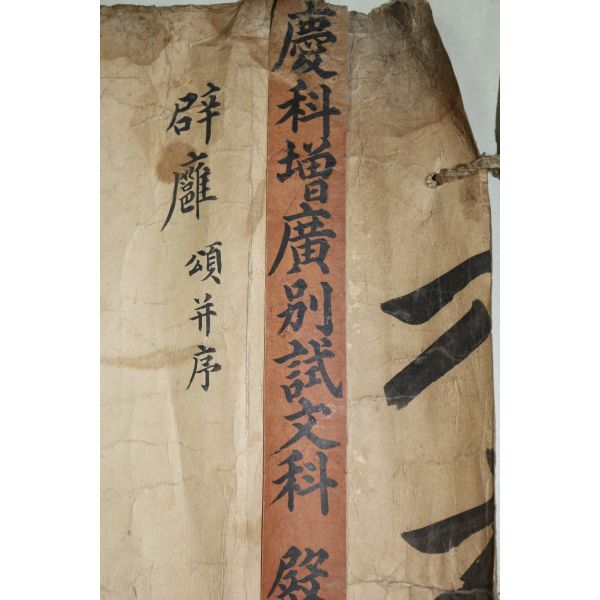 慶科增廣別試文科 殿
辟廱頌并序